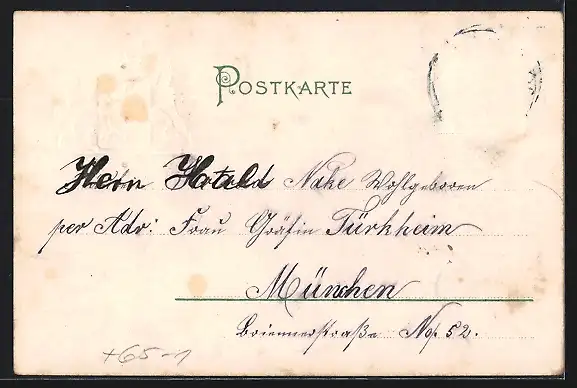 POSTKARTE
Herrn Harald Nake Wohlgeboren
per Adr: Frau Gräfin Türkheim
München
Briennerstraße No. 52.
+65-1